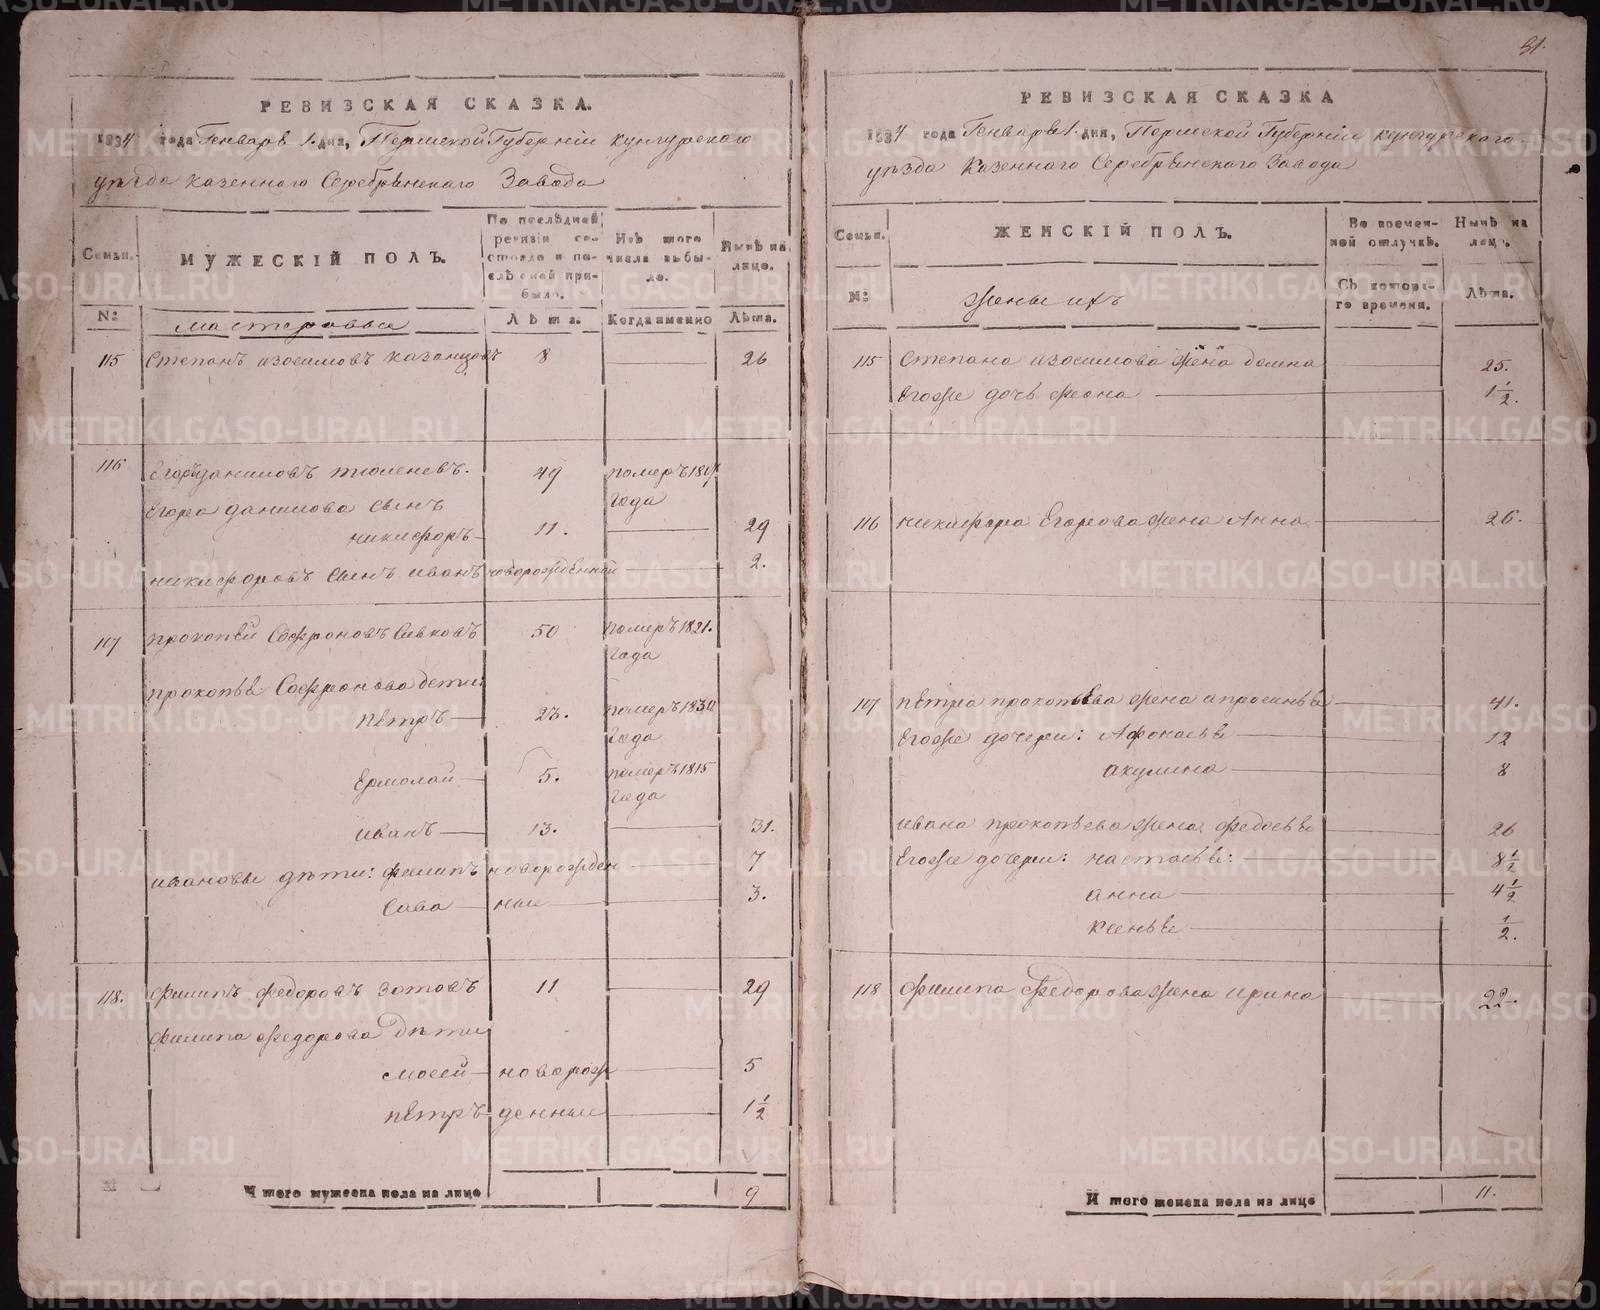 31.
РЕВИЗСКАЯ СКАЗКА.
1834 года Генваря 1. дня, Пермской Губерніи кунгурскаго
уѣзда казеннаго Серебрянскаго Завода
Семьи. МУЖЕСКІЙ ПОЛЪ. По послѣдней ревизіи состояло и послѣ оной прибыло. Изъ того числа выбыло. Нынѣ на лицо.
№: мастеровые Лѣта. Когда именно Лѣта.
115 Степанъ изосимовъ казанцовъ 8 26
116 Егоръ даниловъ тюленевъ. 49 померъ
года
Егора данилова сынъ
никифоръ 11. 29
никифоровъ сынъ иванъ новорожденной 2.
117 прокопей Софроновъ Сивковъ 50 померъ 1821.
года
прокопья Софронова дети:
петръ 23. померъ
года
Ермолай 5. померъ 1815
года
иванъ 13. 31.
ивановы дѣти: филипъ новорожден 7
Сава ные 3.
118. филипъ федоровъ Зотовъ 11 29
филипа федорова дѣти
мосей новорож 5
петръ денные 1 1/2
Итого мужеска пола на лицо 9
РЕВИЗСКАЯ СКАЗКА
1834 года Генваря 1. дня, Пермской Губерніи кунгурскаго
уѣзда казеннаго Серебрянскаго Завода
Семьи. ЖЕНСКІЙ ПОЛЪ. Во временной отлучкѣ. Нынѣ на лицо.
№: жены ихъ Съ котораго времени. Лѣта.
115 Степана изосимова жена домна 25.
Егоже дочь феона 1 1/2.
116 никифора Егорова жена Анна 26.
117 петра прокопьева жена апросинья 41.
Егоже дочери: Афонасья 12
акулина 8
ивана прокопьева жена федосья 26
Егоже дочери: настасья: 8 1/2
анна 4 1/2
ксенья 1/2.
118 филипа федорова жена ирина 22.
Итого женска пола на лицо 11.
METRIKI.GASO-URAL.RU